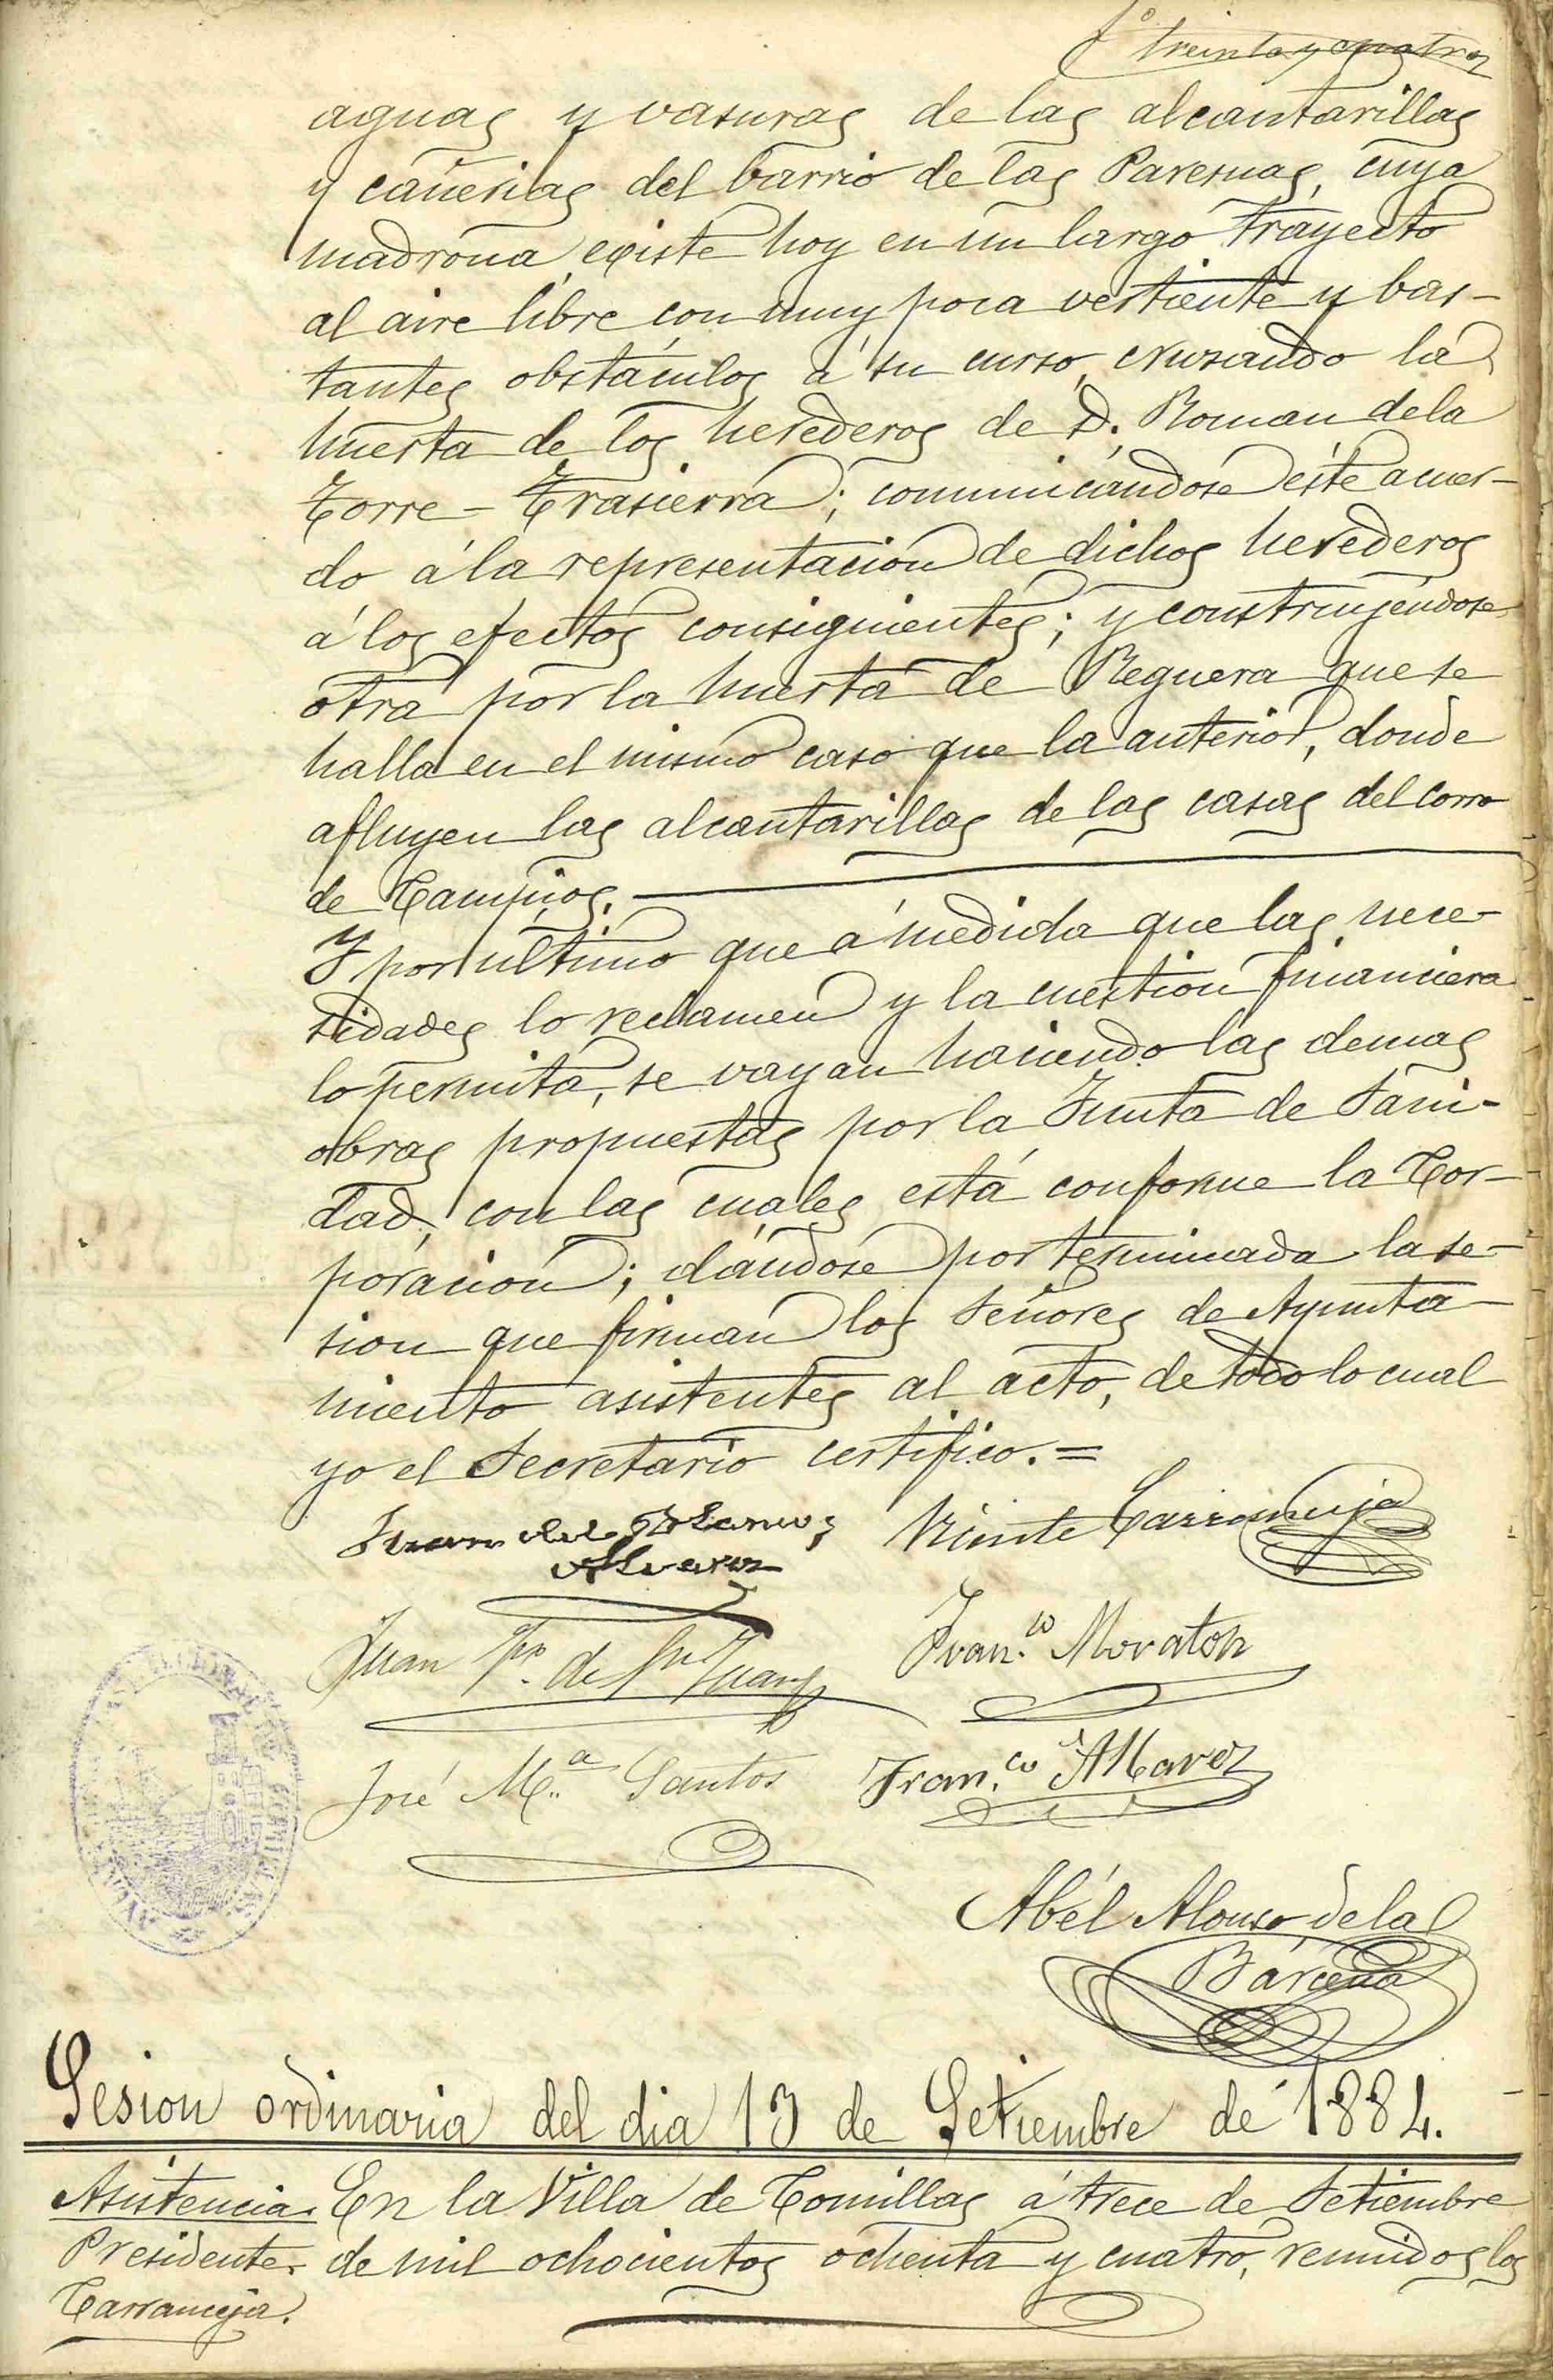 fº treinta y cuatro
aguas y vasuras de las alcantarillas
y cañerias del barrio de las Paresuas, cuya
madroña existe hoy en un largo trayecto
al aire libre con muy poca vertiente y bas-
tantes obstáculos á su curso, cruzando la
huerta de los herederos de D. Roman de la
Torre-Trasierra; comunicándose éste acuer-
do á la representacion de dichos herederos
á los efectos consiguientes; y construyéndose
otra por la huerta de Reguera que se
halla en el mismo caso que la anterior, donde
afluyen las alcantarillas de las casas del corro
de Campios.
Y por último que á medida que las nece-
sidades lo reclamen y la cuestion financiera
lo permita, se vayan haciendo las demas
obras propuestas por la Junta de Sani-
dad, con las cuales está conforme la Cor-
poracion; dándose por terminada la se-
sion que firman los Señores de Ayunta-
miento asistentes al acto, de todo lo cual
yo el Secretario certifico.=
Juan de los
Alvarez
Vicente Carranceja
Juan Fr. de Sn Juan
Fran.co Moraton
José M.a Santos
Fran.co Alvarez
Abél Alonso de la
Bárcena
Sesion ordinaria del dia 13 de Setiembre de 1884.
Asistencia. En la Villa de Comillas á trece de Setiembre
Presidente. de mil ochocientos ochenta y cuatro, reunidos los
Carranceja.